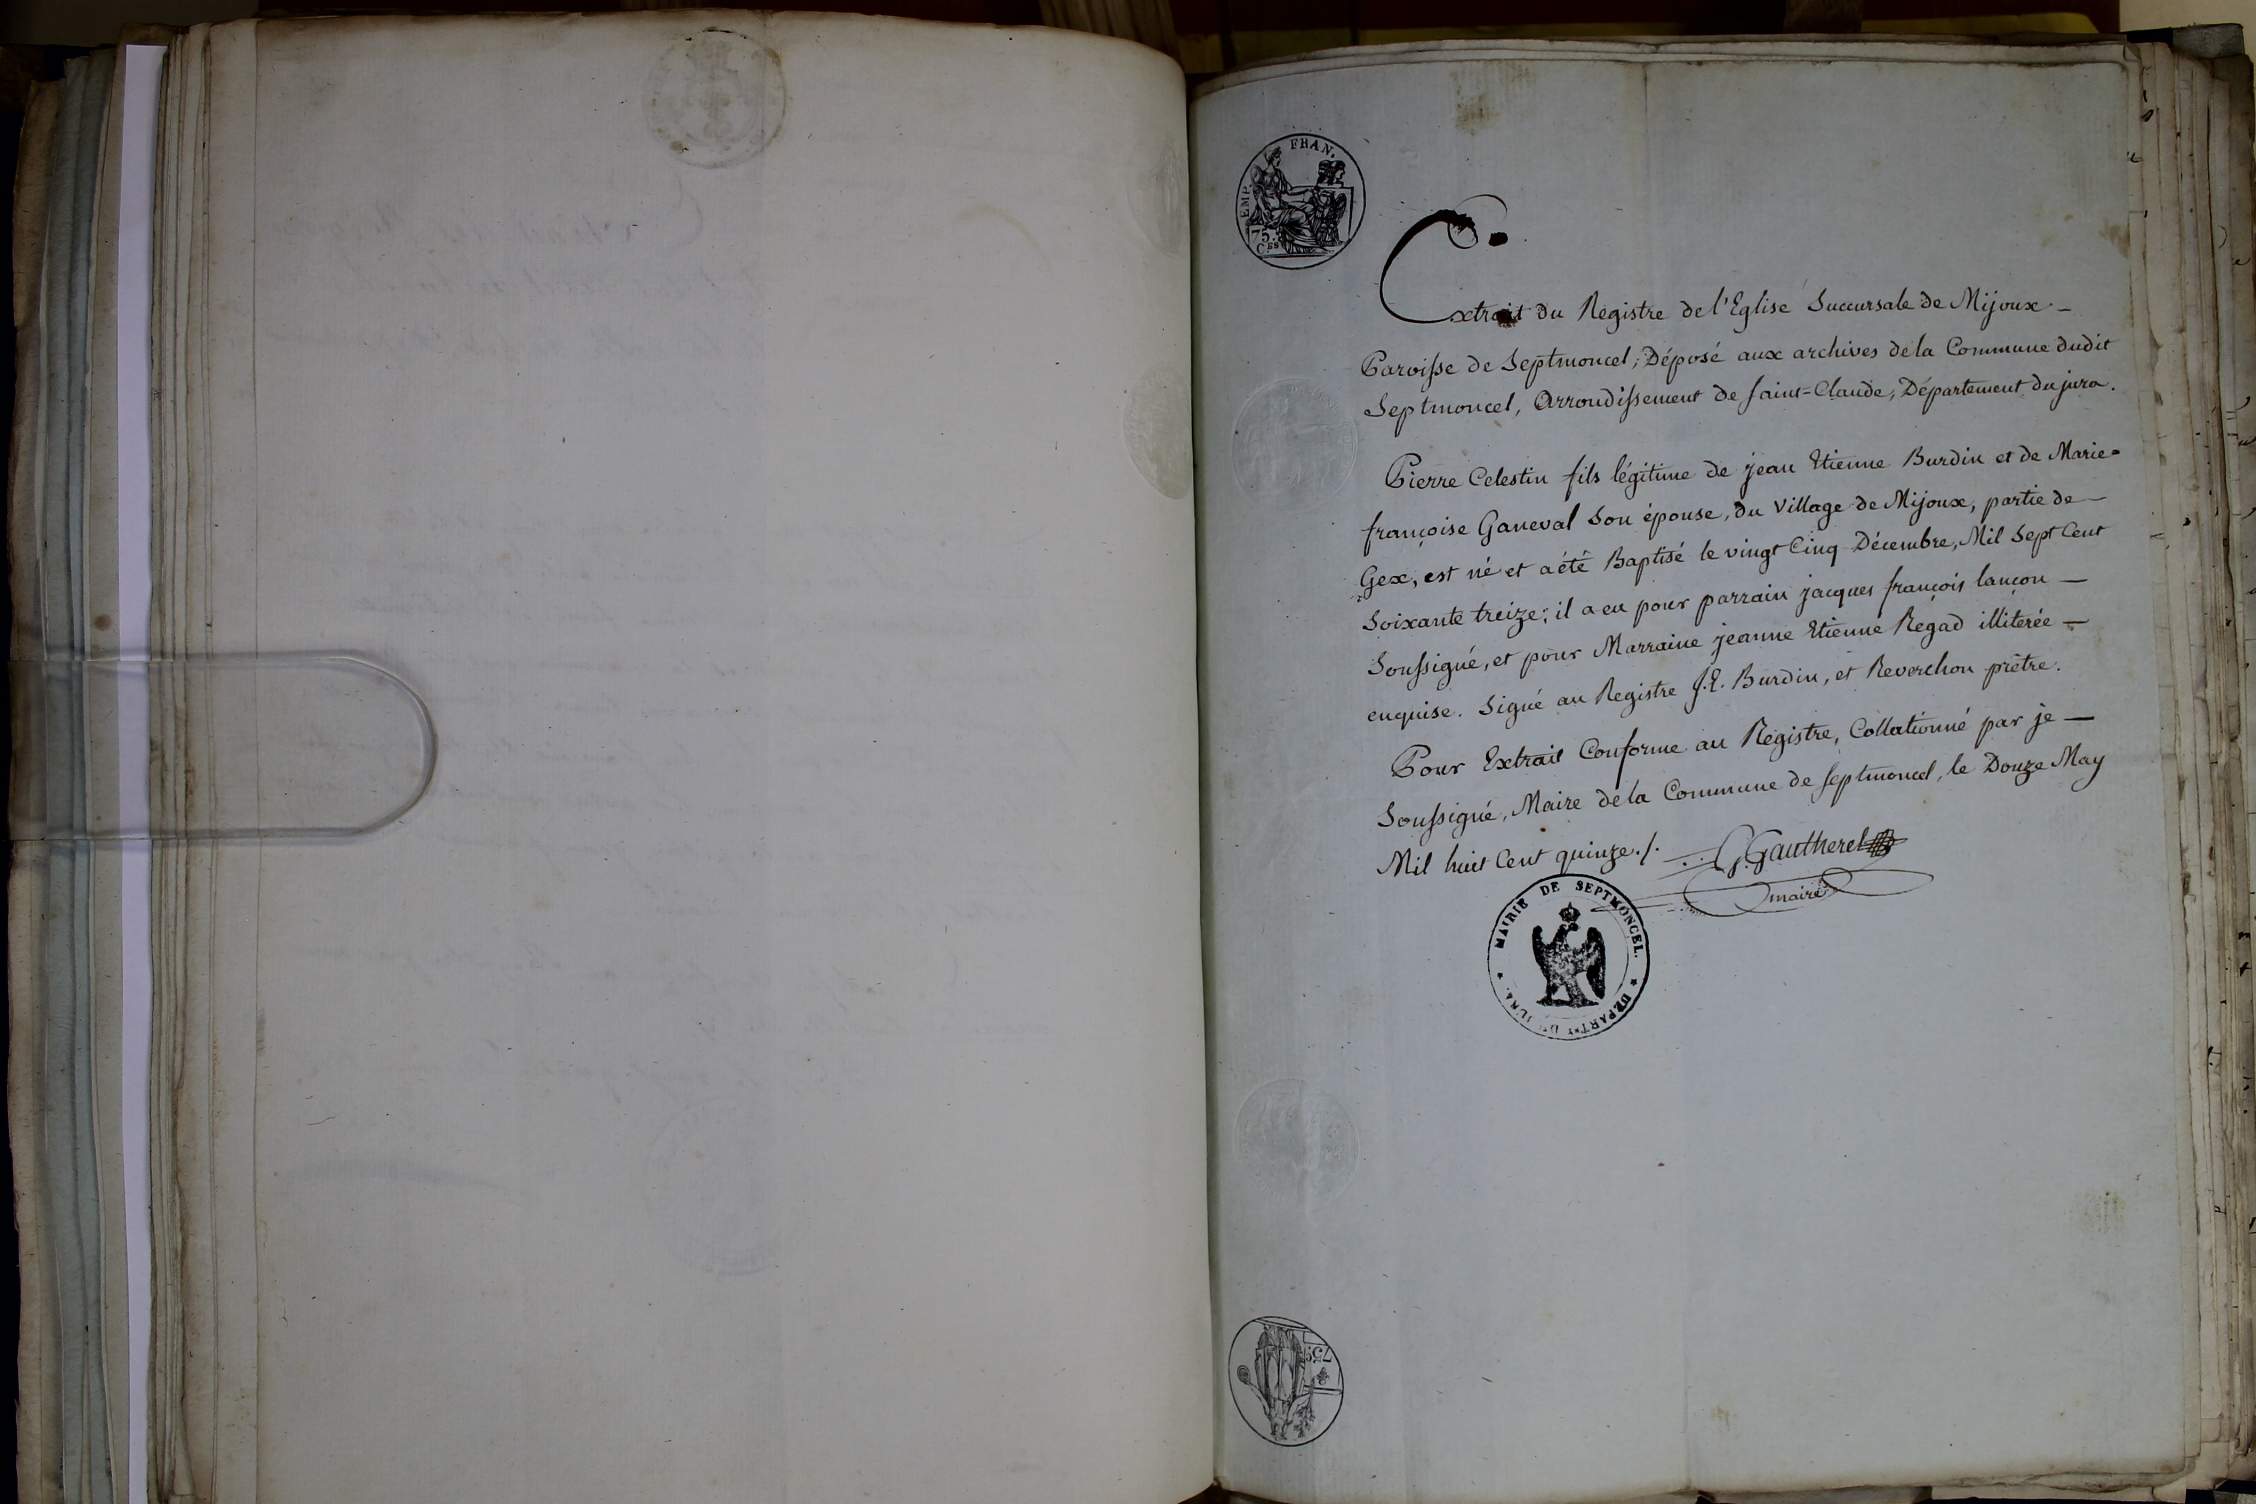 EMP. FRAN.
75.
CES
Extrait du Registre de l'Eglise Succursale de Mijoux -
Paroisse de Septmoncel, Déposé aux archives de la Commune dudit
Septmoncel, Arrondissement de Saint-Claude, Département du jura.
Pierre Celestin fils légitime de jean Etienne Burdin et de Marie=
françoise Ganeval Son épouse, du Village de Mijoux, partie de —
Gex, est né et a été Baptisé le vingt Cinq Décembre, Mil Sept Cent
Soixante treize; il a eu pour parrain jacques françois lançon —
Soussigné, et pour Marraine jeanne Etienne Regad illiterée —
enquise. Signé au Registre J.E. Burdin, et Reverchon prêtre.
Pour Extrait Conforme au Registre, Collationné par je —
Soussigné, Maire de la Commune de Septmoncel, le Douze May
Mil huit Cent quinze ./. G. Gautherel
maire
MAIRIE DE SEPTMONCEL. * DÉPART.NT DU JURA. *
75